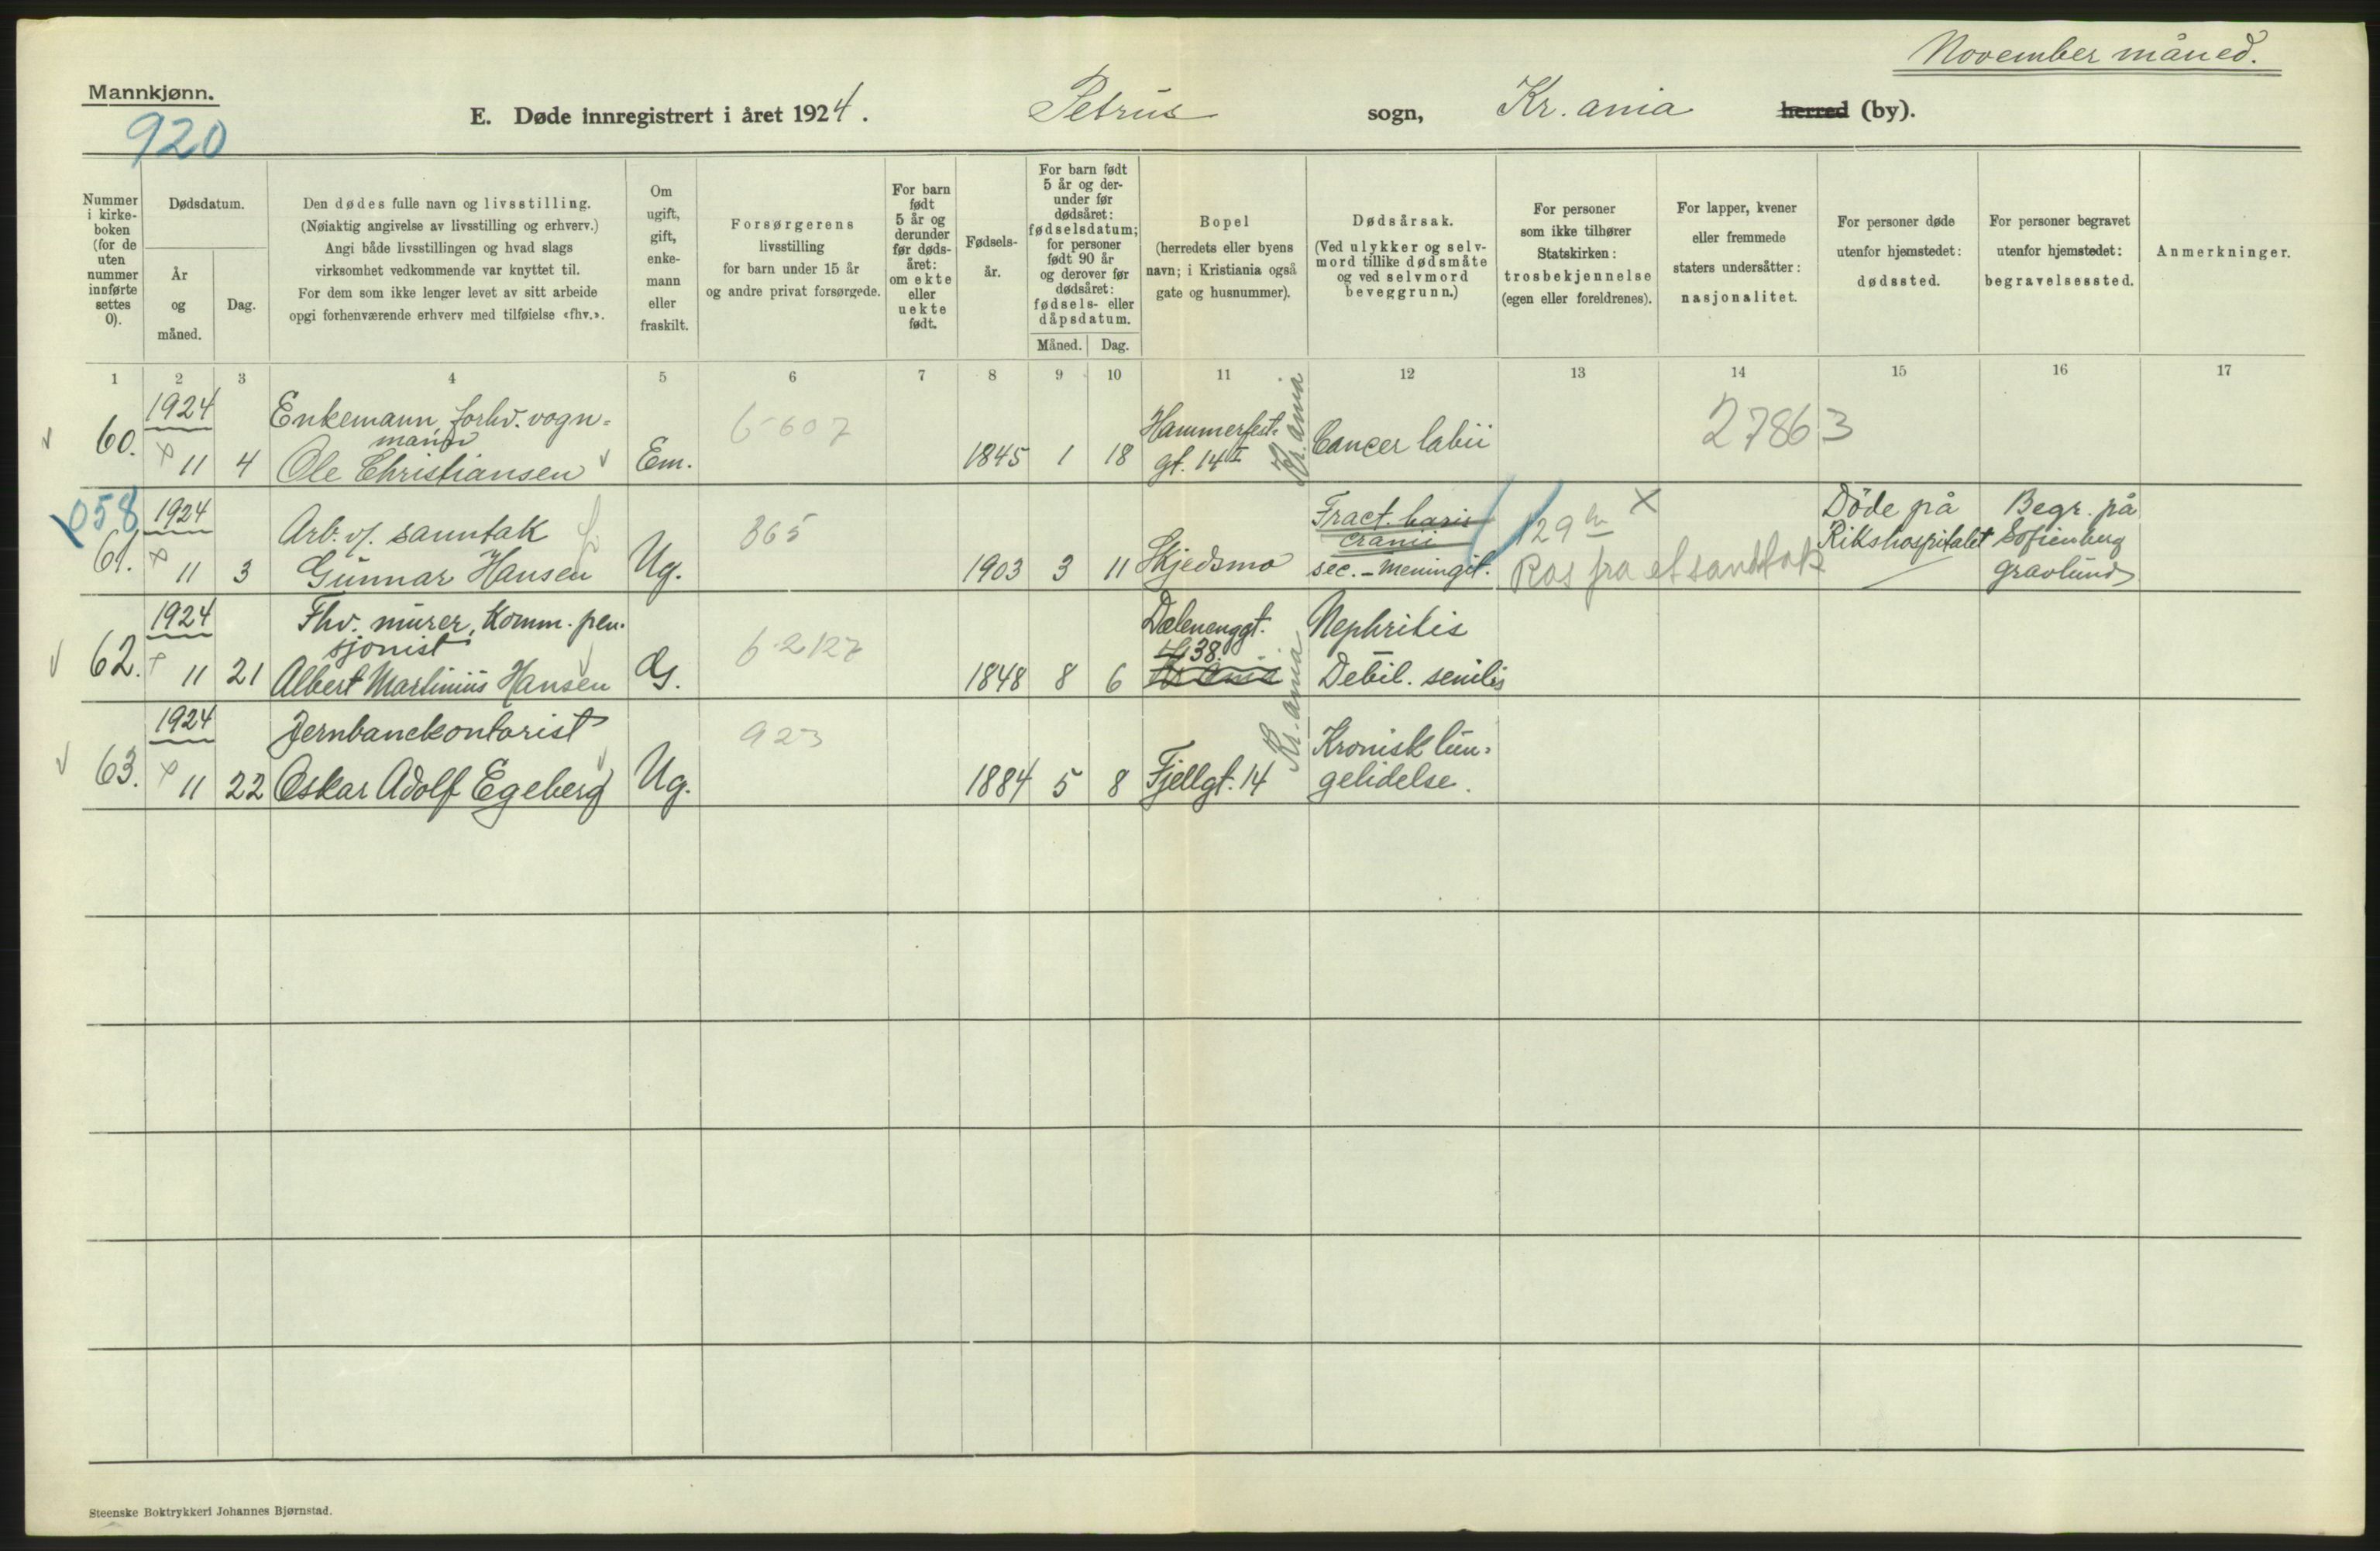 November måned.
Mannkjønn.
920
E. Døde innregistrert i året 1924. Petrus sogn, Kr.ania herred (by).
Nummer i kirke-boken (for de uten nummer innførte settes 0).
Dødsdatum.
År og måned.
Dag.
Den dødes fulle navn og livsstilling.
(Nøiaktig angivelse av livsstilling og erhverv.)
Angi både livsstillingen og hvad slags
virksomhet vedkommende var knyttet til.
For dem som ikke lenger levet av sitt arbeide
opgi forhenværende erhverv med tilføielse «fhv.».
Om ugift, gift, enke-mann eller fraskilt.
Forsørgerens
livsstilling
for barn under 15 år
og andre privat forsørgede.
For barn født 5 år og derunder før døds-året: om ekte eller uekte født.
Fødsels-år.
For barn født 5 år og der-under før dødsåret: fødselsdatum; for personer født 90 år og derover før dødsåret: fødsels- eller dåpsdatum.
Måned. Dag.
Bopel
(herredets eller byens
navn; i Kristiania også
gate og husnummer).
Dødsårsak.
(Ved ulykker og selv-
mord tillike dødsmåte
og ved selvmord
beveggrunn.)
For personer
som ikke tilhører
Statskirken:
trosbekjennelse
(egen eller foreldrenes).
For lapper, kvener
eller fremmede
staters undersåtter:
nasjonalitet.
For personer døde
utenfor hjemstedet:
dødssted.
For personer begravet
utenfor hjemstedet:
begravelsessted.
Anmerkninger.
1 2 3 4 5 6 7 8 9 10 11 12 13 14 15 16 17
60. 1924 11 4
Enkemann, forhv. vogn=
mann
Ole Christiansen
Em. 6-607 1845 1 18
Hammerfest-
gt. 14 I
Kr.ania
Cancer labii
27863
058
61. 1924 11 3
Arb. v/. sanntak
Gunnar Hansen
Ug. 365 1903 3 11
Skjedsmo
Fract. basis
cranii
sec. - meningit.
129 X
Ras fra et sandtak
Döde på
Rikshospitalet
Begr. på
Sofienberg
gravlund
62. 1924 11 21
Fhv. murer, Komm. pen-
sjonist
Albert Martinius Hansen
G. 6-2127 1848 8 6
Dælenenggt.
38.
Kr.ania
Nephritis
Debil. senilis
63. 1924 11 22
Jernbanekontorist
Oskar Adolf Egeberg
Ug. 923 1884 5 8
Fjellgt. 14
Kr.ania
Kronisk lun=
gelidelse.
Steenske Boktrykkeri Johannes Bjørnstad.